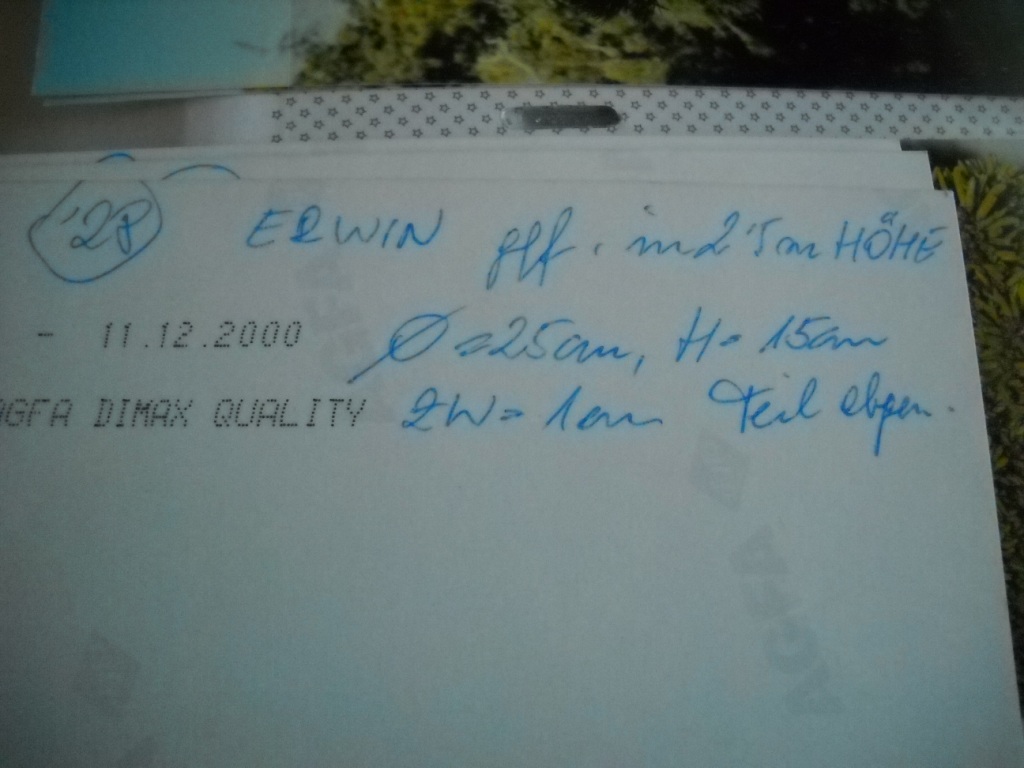 '28 ERWIN gff. in 2'5m HÖHE
- 11.12.2000 Ø = 25cm, H = 15cm
AGFA DIMAX QUALITY ZW = 1cm Teil abgen.
AGFA
AGFA